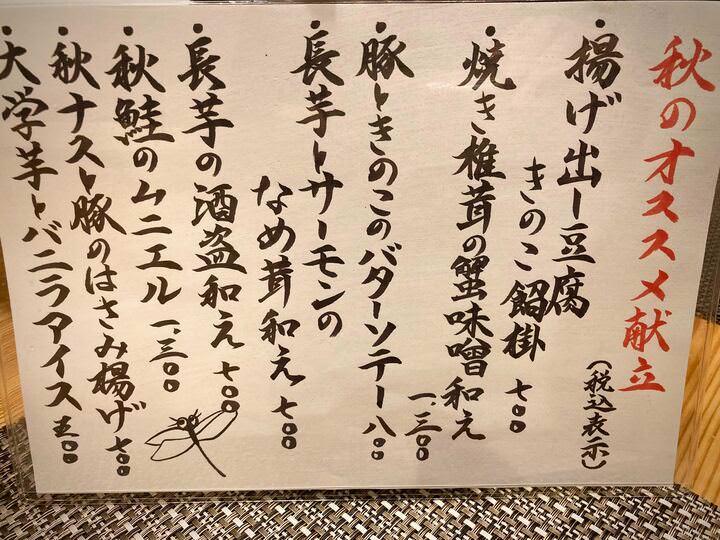 秋のオススメ献立
(税込表示)
・揚げ出し豆腐
きのこ餡掛 七〇〇
・焼き椎茸の蟹味噌和え
一、三〇〇
・豚トきのこのバターソテー 八〇〇
・長芋トサーモンの
なめ茸和え 七〇〇
・長芋の酒盗和え 七〇〇
・秋鮭のムニエル 一、三〇〇
・秋ナスト豚のはさみ揚げ 七〇〇
・大学芋トバニラアイス 五〇〇